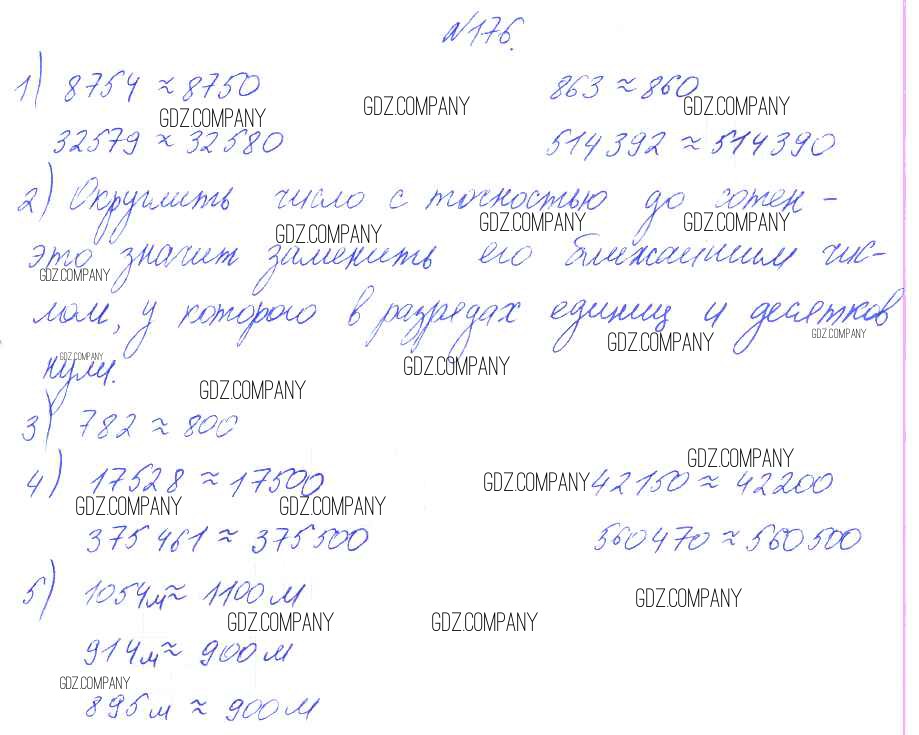 №176.
1) 8754 ≈ 8750 863 ≈ 860
GDZ.COMPANY GDZ.COMPANY GDZ.COMPANY
32579 ≈ 32580 514392 ≈ 514390
2) Округлить число с точностью до сотен -
GDZ.COMPANY GDZ.COMPANY GDZ.COMPANY
это значит заменить его ближайшим чис-
GDZ.COMPANY
лом, у которого в разрядах единиц и десятков
GDZ.COMPANY GDZ.COMPANY
GDZ.COMPANY GDZ.COMPANY
нули.
GDZ.COMPANY
3) 782 ≈ 800
GDZ.COMPANY
4) 17528 ≈ 17500 GDZ.COMPANY 42150 ≈ 42200
GDZ.COMPANY GDZ.COMPANY
375461 ≈ 375500 560470 ≈ 560500
5) 1054м ≈ 1100м
GDZ.COMPANY
GDZ.COMPANY GDZ.COMPANY
914м ≈ 900м
GDZ.COMPANY
895м ≈ 900м